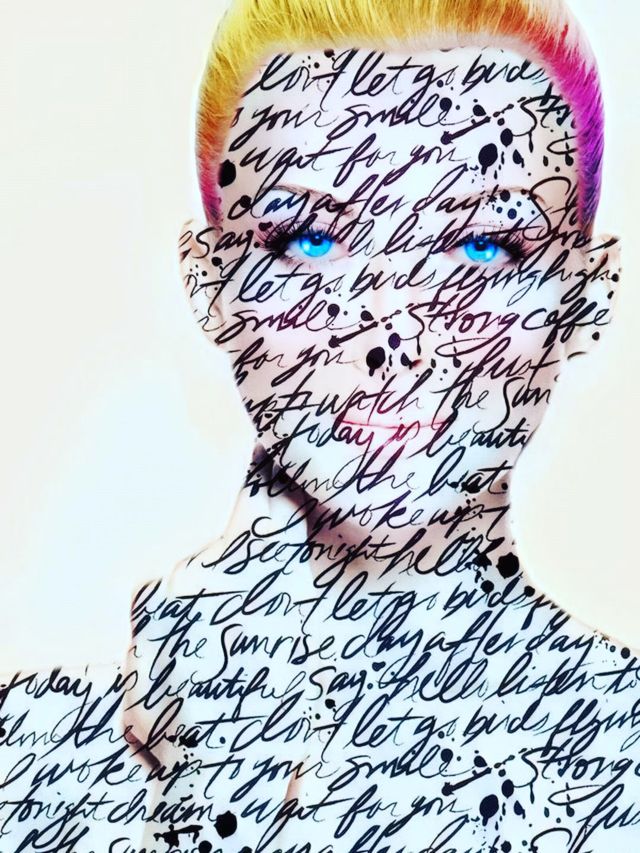 don't let go birds
to your smile Str
wait for you
day after day S
say hello listen to
't let go birds flying high
r smile Strong coffe
for you Just
up to watch the sun
today is beauti
follow the beat
I woke up t
see tonight hell
beat don't let go birds fl
n the sunrise day after day
today is beautiful say hello listen to
follow the beat don't let go birds flying
I woke up to your smile Strong c
tonight dream wait for you Jus
the sunrise day after day